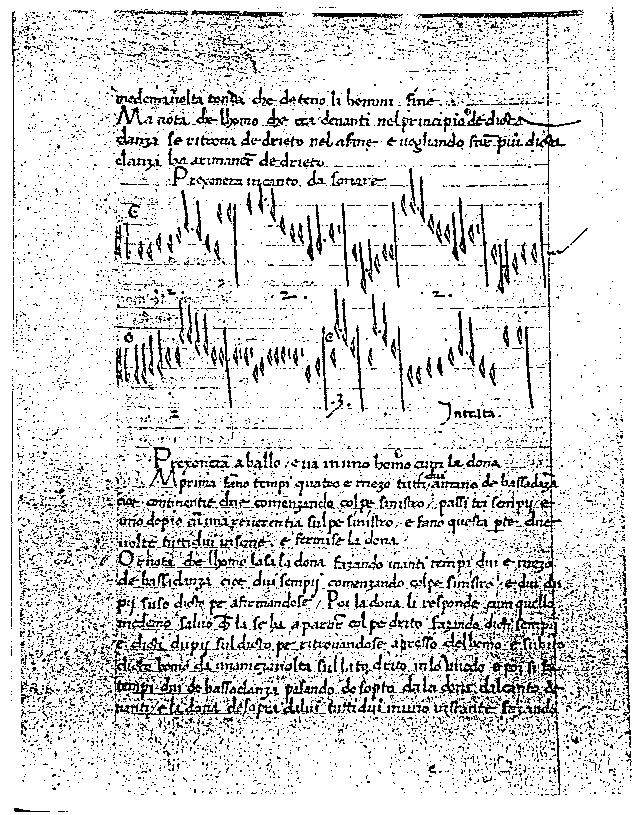 medema volta tonda che deteno li homini. fine
Ma nota che lhomo che era denanti nel principio de dicta
danza se ritrova de drieto nel a fine e vogliando fare più dicta
danza ha a rimaner de drieto
Prexonera in canto da sonare
C
3. 2. 2. 2.
O C
2 .3. Intrata
Prexonera a ballo e va in uno homo cum la dona
prima fano tempi quatro e mezo tutti dui de bassadanza
cioe continentie due comenzando col pe sinistro passi tri sempij e
uno dopio cum una reverentia sul pe sinistro e fano questa pte due
volte tutti dui inseme e fermise la dona
Or nota che lhomo lassa la dona fazando inanti tempi dui e mezo
de bassadanza cioe dui sempij comenzando col pe sinistro e dui du
pij suso dicto pe afirmandose Poi la dona li responde cum quello
medemo salvo che la se ha a partir col pe drito fazando dicti sempij
e dicti dupij sul dicto pe ritrovandose apresso del homo e subito
dicto homo da una meza volta sul lato drito
tempi dui de bassadanza pasando de sopto da la dona dal canto de
nanti e la dona de sopra da lui tutti dui in uno instante fazando